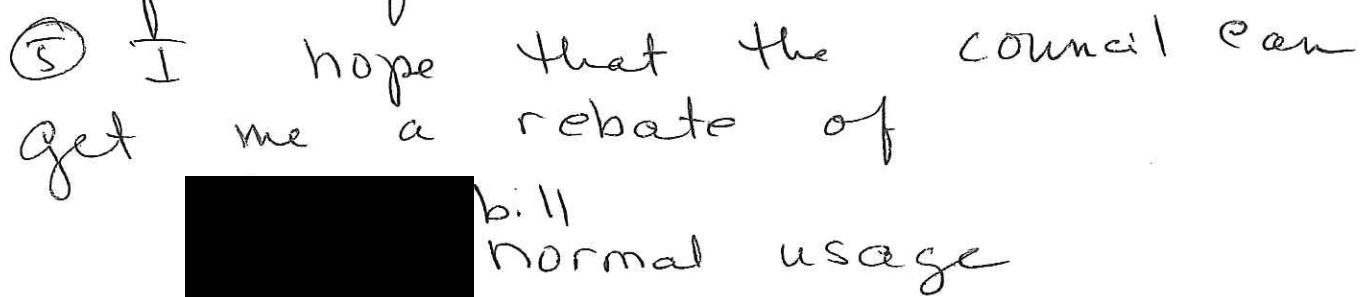 ⑤ I hope that the council can
get me a rebate of
bill
normal usage